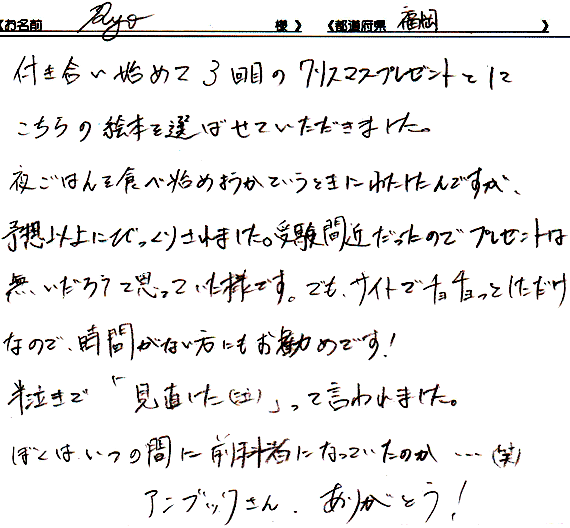 《お名前 Ryo 様》 《都道府県 福岡 》
付き合い始めて3回目のクリスマスプレゼントとして
こちらの絵本を選ばせていただきました。
夜ごはんを食べ始めようかていうときにわたしたんですが、
予想以上にびっくりされました。受験間近だったのでプレゼントは
無いだろうて思っていた様です。でも、サイトでチョチョっとしただけ
なので、時間がない方にもお勧めです!
半泣きで「見直した(泣)」って言われました。
ぼくはいつの間に前科者になっていたのか…(笑)
アンブックさん、ありがとう!